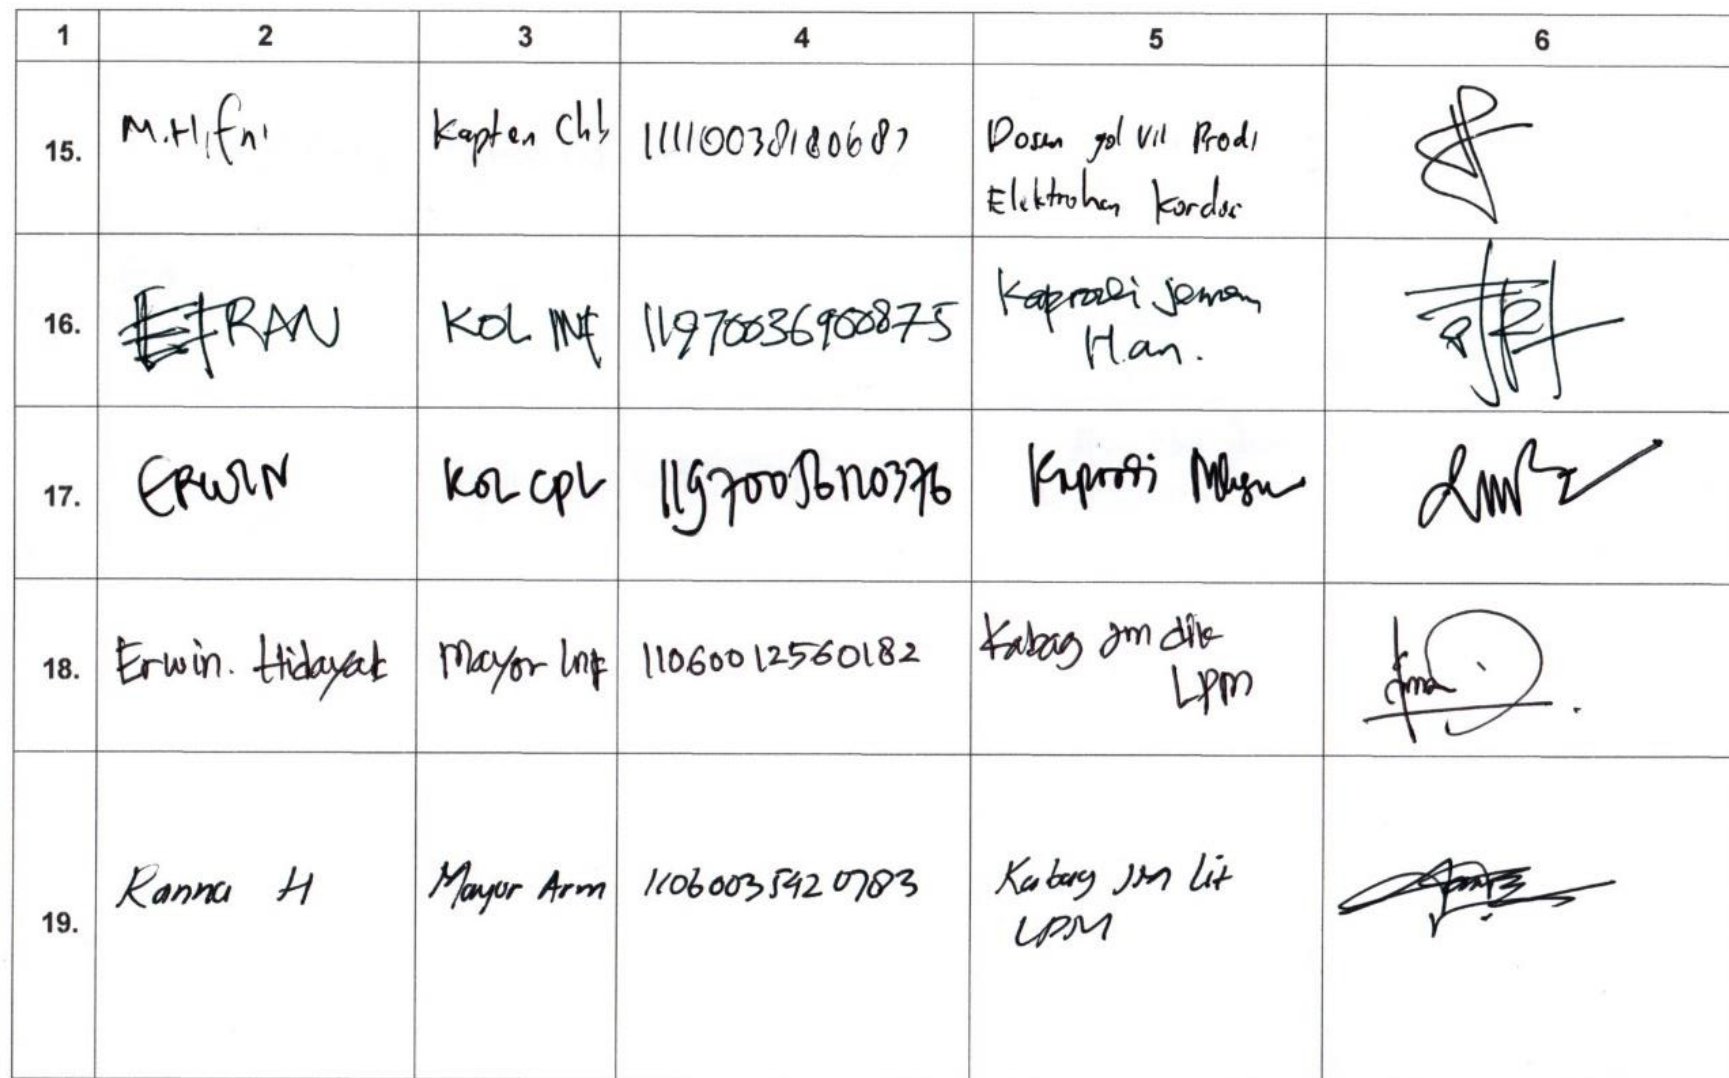 1 2 3 4 5 6
15. M. Hifni Kapten Chb 11110038180687 Dosen gol VII Prodi
Elektrohan Kordos
16. EFRAN KOL INF 11970036900875 Kaprodi Jemen
Han.
17. ERWIN KOL CPL Kaprodi
18. Erwin. Hidayat Mayor Inf 11060012560182 Kabag Jm dik
LPM
19. Ranna H Mayor Arm 11060035420783 Kabag Jm Lit
LPM